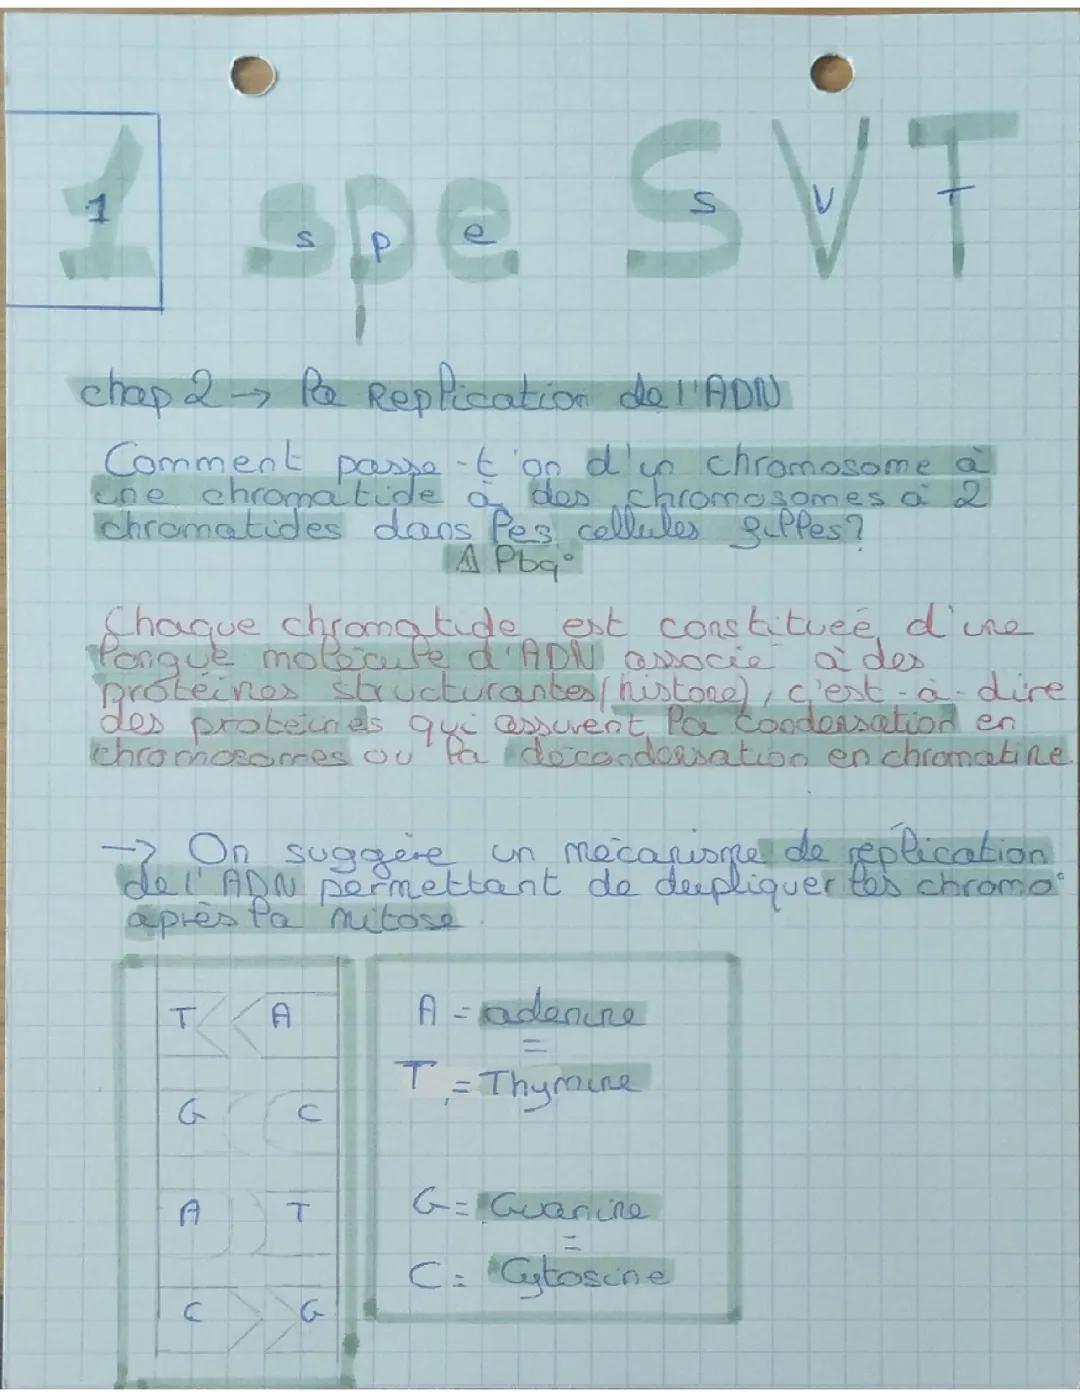 1 spe SVT
1 s p e S V T
chap 2 → la Replication de l'ADN
Comment passe-t'on d'un chromosome à
une chromatide à des chromosomes à 2
chromatides dans les cellules filles?
Pbq°
Chaque chromatide est constituée d'une
longue molécule d'ADN associé à des
protéines structurantes (histone), c'est-à-dire
des protéines qui assurent la condensation en
chromosomes ou la décondensation en chromatine.
→ On suggère un mécanisme de réplication
de l'ADN permettant de dupliquer les chromo°
après la mitose.
T A
G C
A T
C G
A = adenine
=
T = Thymine
G = Guanine
=
C = Cytosine